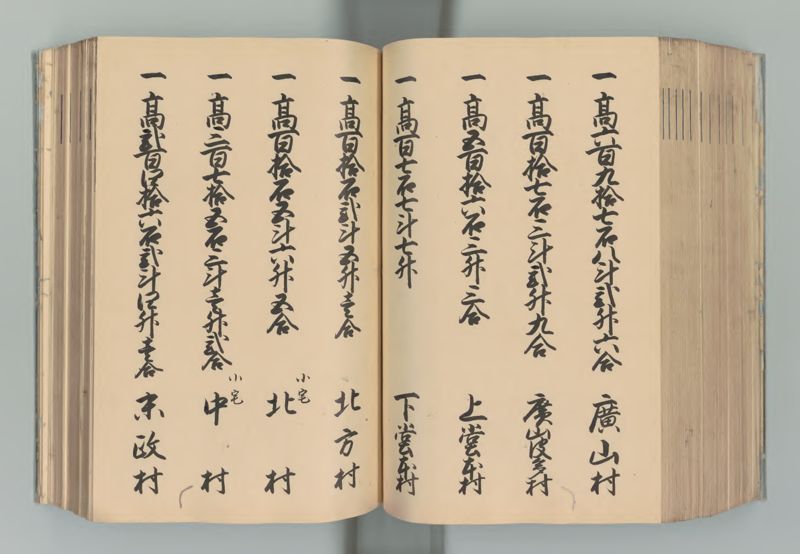 一 高六百九拾七石八斗弐升六合 廣山村
一 高百拾七石三斗弐升九合 廣山村
一 高五百拾六石三升三合 上堂本村
一 高百七石七斗七升 下堂本村
一 高百拾石弐斗五升壱合 北方村
一 高百拾石五斗六升五合 小宅北村
一 高三百七拾五石三斗壱升弐合 小宅中村
一 高弐百四拾六石弐斗四升壱合 末政村